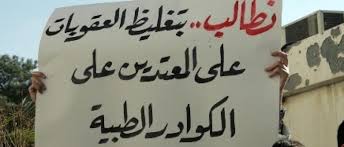 نطالب.. بتغليظ العقوبات
على المعتدين على
الكوادر الطبية